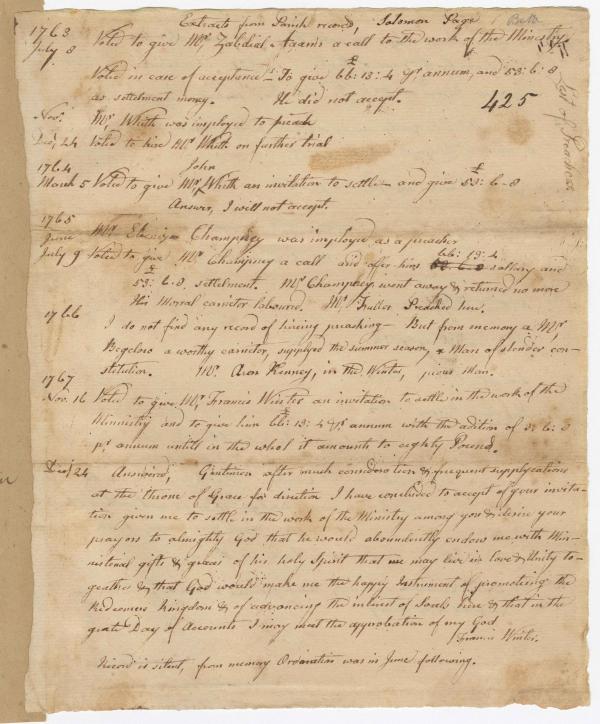 Extracts from Parish records, Solomon Page Bath
1763
July 8 Voted to give Mr Zabdiel Adam's a call to the work of the Ministry.
Voted in case of acceptance - To give £66: 13: 4 pr annum, and 53: 6: 8
as settelment money. He did not accept. 425
List of Preachers
Novr Mr Whith was imployed to preach
Decr 24 Voted to hire Mr Whith on further trial
1764
March 5 Voted to give Mr John Whith an invitation to settle - and give £53: 6-8
Answer, I will not accept.
1765
June Mr Champney was imployed as a preacher
July 9 Voted to give Mr Champney a call and offer him 66: 13: 4 sallery and
£53: 6. 8. settelment. Mr Champney went away & returned no more
His Moral carricter laboured. Mr Fuller Preached here.
1766
I do not find any record of hireing preashing - But from memory a Mr
Begelow a worthy carricter, supplyed the summer season, a Man of slender con-
stitution. Mr Aron Kenney, in the Winter, pious Man.
1767
Nov. 16 Voted to give Mr Francis Winter an invitation to settle in the work of the
Minnistry and to give him £66: 13: 4 pr annum with the adition of 5: 6: 8
pr annum untill in the whol it amounts to eighty Pound.
Decr 24 Answered, Gentlemen after much consideration & frequent supplycations
at the throne of Grace for direction I have concluded to accept of your invita-
tion given me to settle in the work of the Ministry among you & desire your
prayors to almighty God that he would aboundently endow me with Min-
nisterial gifts & graces of his holy Spirit that we may live in love & Unity to-
geather & that God would make me the happy Instrument of promoteing the
Redeemers Kingdom & of advancing the intrest of Souls here & that in the
grate Day of Accounts I may meet the approbation of my God
Francis Winter.
Record is silent, from memory Ordination was in June following.